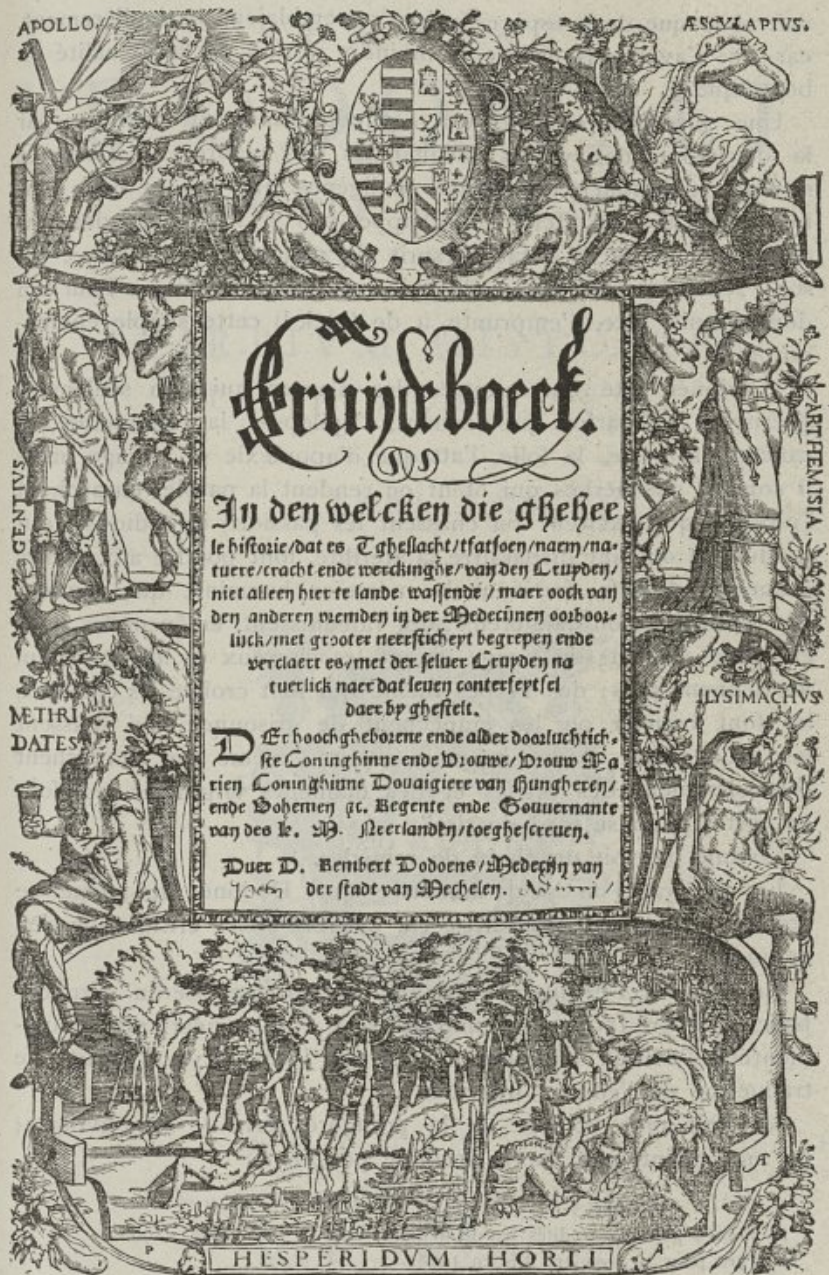 APOLLO.
ÆSCVLAPIVS.
GENTIVS
ARTHEMISIA
METHRI
DATES
LYSIMACHVS
Cruÿdeboeck.
In den welcken die ghehee
le historie/dat es Tgheslacht/tfatsoen/naem/na-
tuere/cracht ende werckinghe/van den Cruyden/
niet alleen hier te lande wassende/maer oock van
den anderen vremden in der Medecijnen oorboor-
lijck/met grooter neersticheyt begrepen ende
verclaert es/met der seluer Cruyden na
tuerlick naer dat leuen conterfeytsel
daer by ghestelt.
DEr hoochgheborene ende alder doorluchtich-
ste Coninghinne ende Vrouwe/Vrouw Ma
rien Coninghinne Douaigiere van Hungheren/
ende Bohemen ꝛc. Regente ende Gouuernante
van des K. M. Neerlanden/toeghescreuen.
Duer D. Rembert Dodoens/Medecijn van
der stadt van Mechelen.
P A
A
HESPERIDVM HORTI